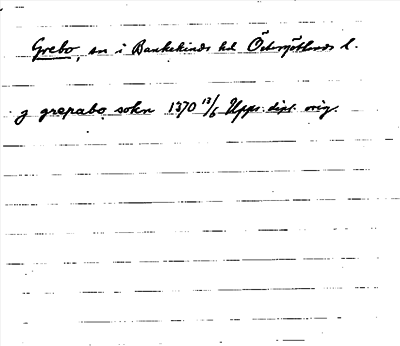 Grebo, sn i Bankekinds hd Östergötlands l.
j grepabo sokn 1370 13/6 Upps. dipl. orig.